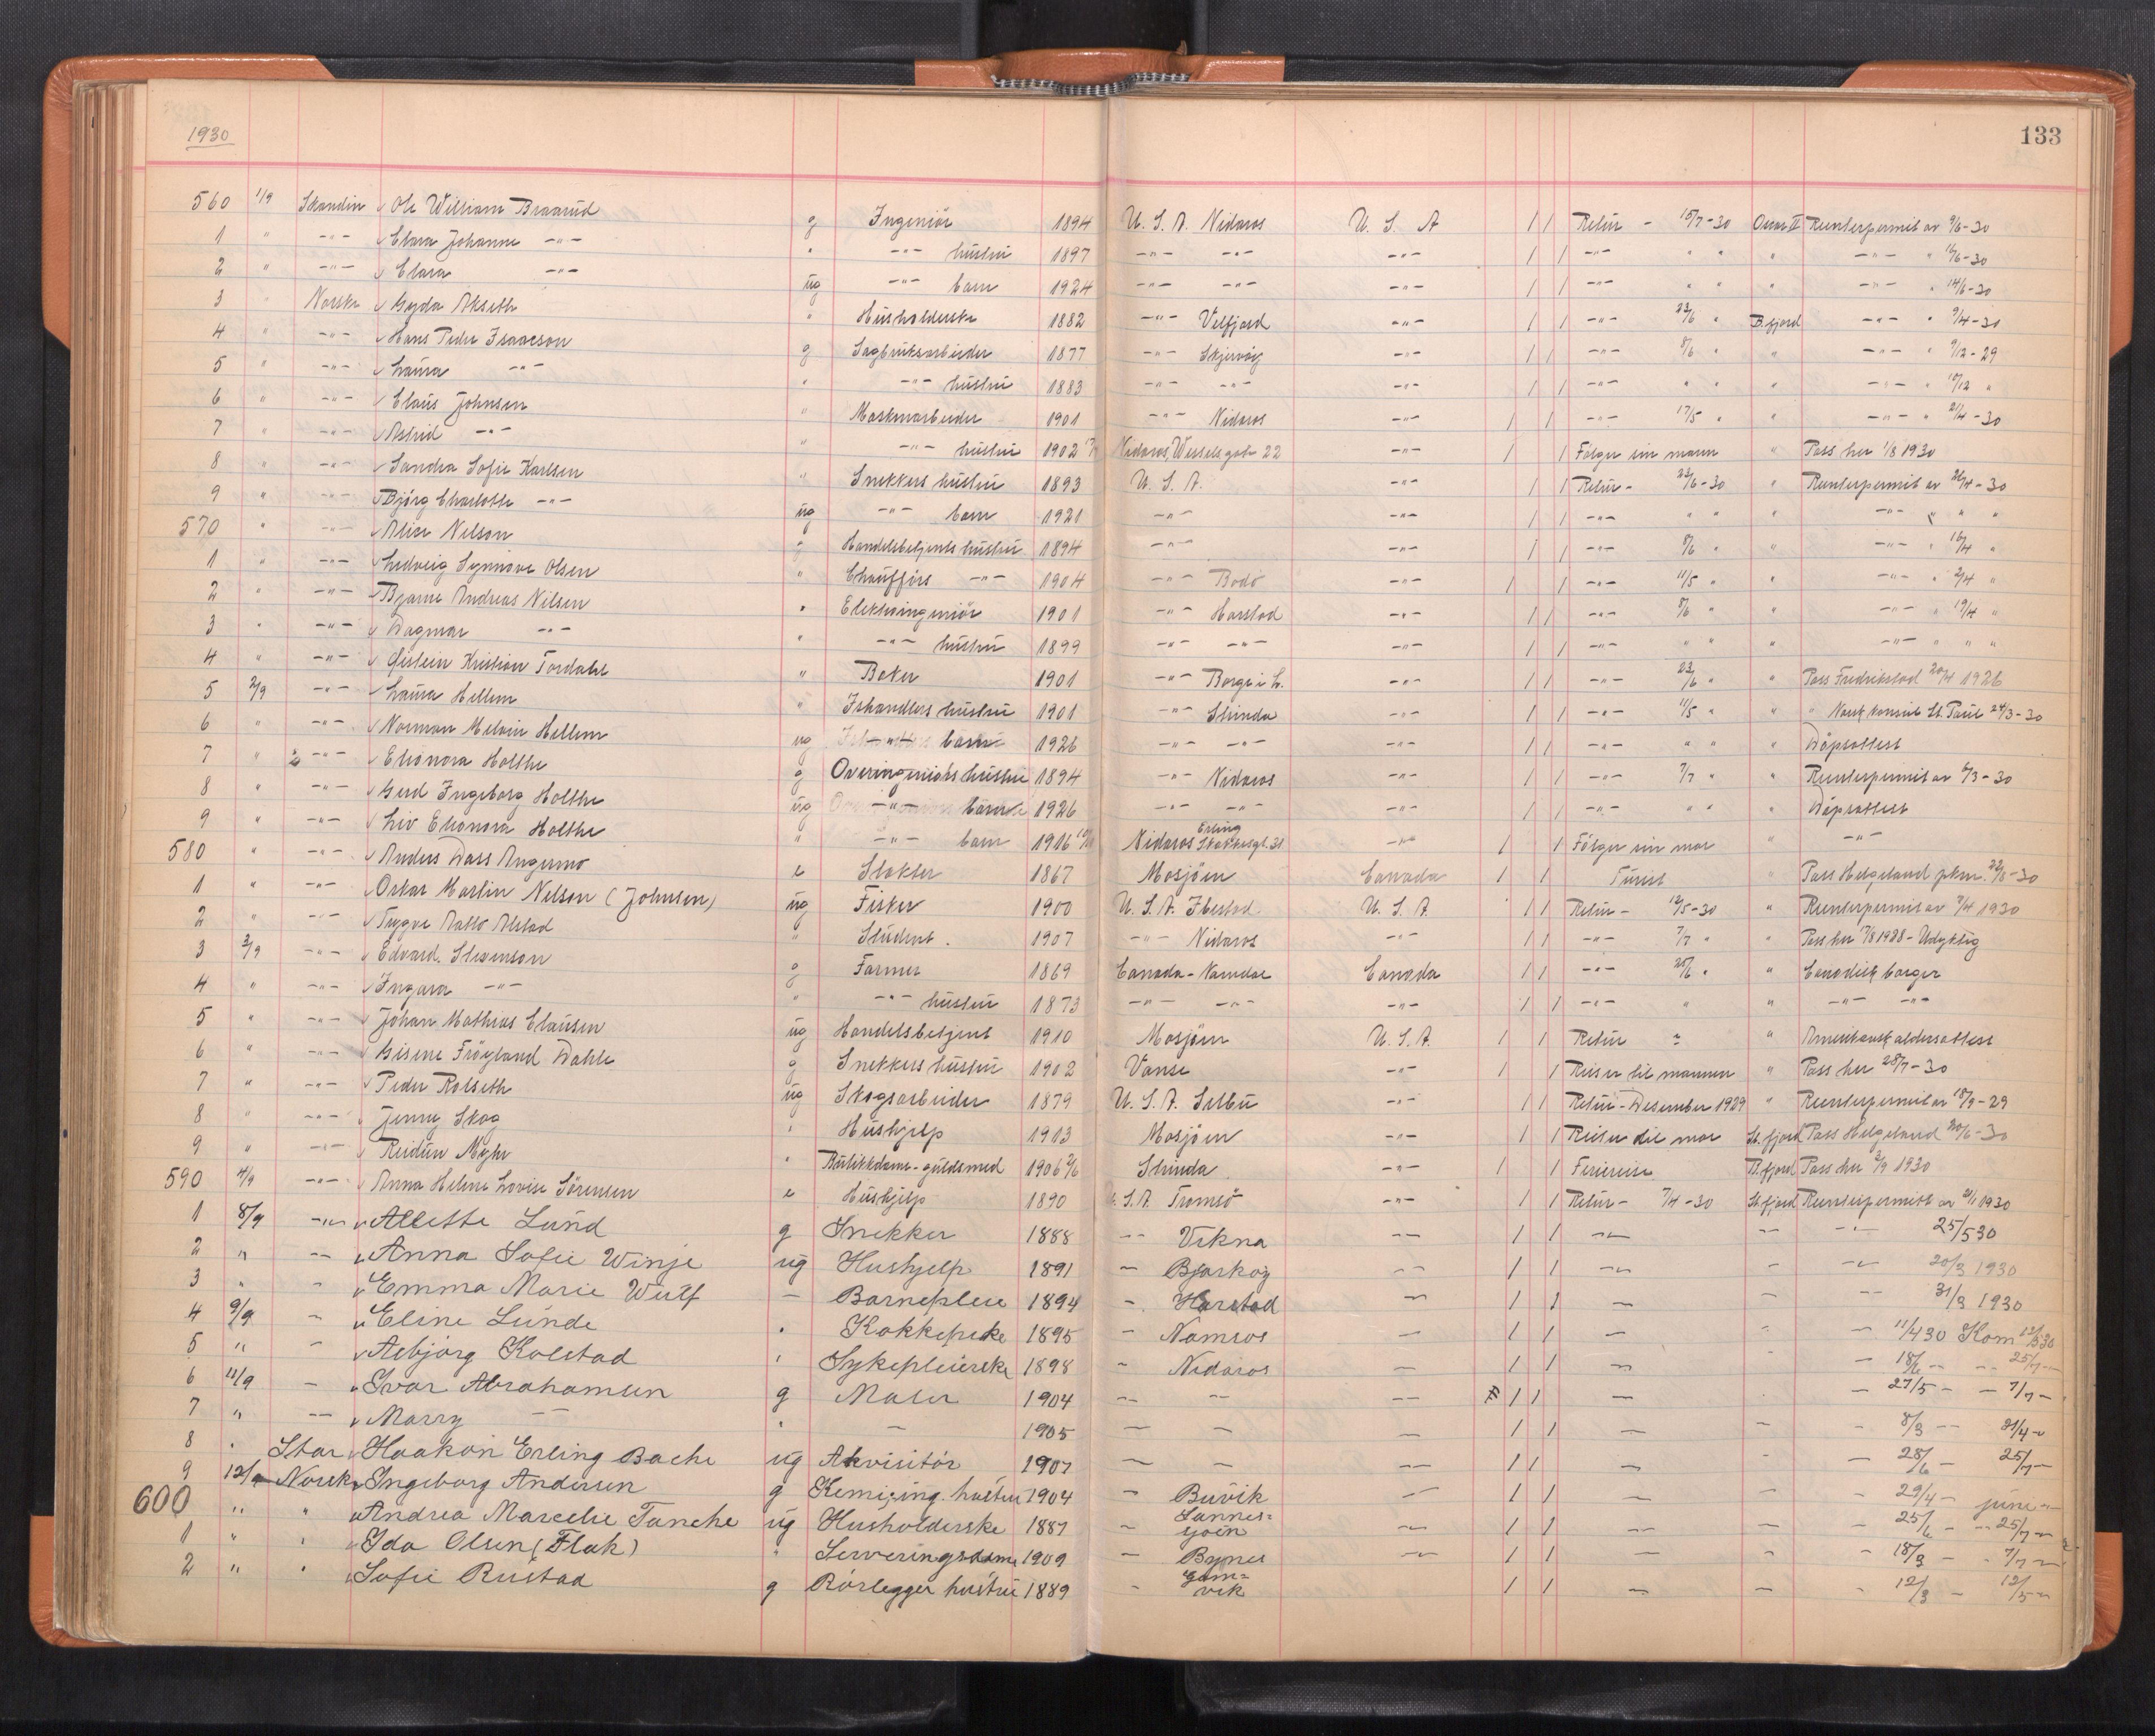 1930
133
560 1/9 Skandin Ole William Braarud g Ingeniör 1894 U.S.A. Nidaros U.S.A 1 1 Retur - 15/7-30 Oscar II Reenterpermit av 9/6-30
1 " -"- Clara Johanne -"- " -"- hustru 1897 -"- -"- -"- 1 1 -"- " " " -"- " 16/6-30
2 " -"- Clara -"- ug -"- barn 1924 -"- -"- -"- 1 1 -"- " " " -"- " 14/6-30
3 " Norske Gyda Akseth " Husholderske 1882 -"- Velfjord -"- 1 1 -"- 23/6 " B.fjord -"- " 9/4-30
4 " -"- Hans Peder Isaacson g Sagbruksarbeider 1877 -"- Skjervöy -"- 1 1 -"- 8/6 " " -"- " 9/12-29
5 " -"- Laura -"- " -"- hustru 1883 -"- -"- -"- 1 1 -"- " " " -"- " 10/12 "
6 " -"- Claus Johnsen " Maskinarbeider 1901 -"- Nidaros -"- 1 1 -"- 17/5 " " -"- " 21/4-30
7 " -"- Astrid -"- " -"- hustru 1902 Nidaros, Wesselsgate 22 -"- 1 1 Følger sin mann " Pass her 1/8 1930
8 " -"- Sandra Sofie Karlsen " Snekkers hustru 1893 U.S.A. -"- 1 1 Retur - 23/6-30 " Reenterpermit av 26/4-30
9 " -"- Bjørg Charlotte -"- ug -"- barn 1921 -"- -"- 1 1 -"- " " " -"- " " "
570 " -"- Alice Nelson g Handelsbetjents hustru 1894 -"- -"- 1 1 -"- 8/6 " " -"- " 16/4 "
1 " -"- Ludveig Synnöve Olsen " Chaufförs -"- 1904 -"- Bodö -"- 1 1 -"- 11/5 " " -"- " 2/4 "
2 " -"- Bjarne Andreas Nilsen " Elektroingeniör 1901 -"- Harstad -"- 1 1 -"- 8/6 " " -"- " 19/4 "
3 " -"- Dagmar -"- " -"- hustru 1899 -"- -"- -"- 1 1 -"- " " " -"- " " "
4 " -"- Øistein Kristian Tordahl " Baker 1901 -"- Borge i L. -"- 1 1 -"- 23/6 " " Pass Fredrikstad 20/4 1926
5 2/9 -"- Laura Hellem " Ishandlers hustru 1901 -"- Strinda -"- 1 1 -"- 11/5 " " " Norsk konsul St. Paul 24/3-30
6 " -"- Norman Melvin Hellem ug -"- barn 1926 -"- -"- -"- 1 1 -"- " " " Dåpsattest
7 " -"- Elionora Holthe g Overingeniörs hustru 1894 -"- Nidaros -"- 1 1 -"- 7/7 " " Reenterpermit av 6/3-30
8 " -"- Gerd Ingeborg Holthe ug -"- barn 1926 -"- -"- -"- 1 1 -"- " " " Dåpsattest
9 " -"- Liv Elionora Holthe " -"- barn 1916 Nidaros Erling Skakkesgt. 31 -"- 1 1 Følger sin mor " -"-
580 " -"- Anders Dass Angermo e Slakter 1867 Mosjöen Canada 1 1 Turist " Pass Helgeland pkm. 22/8-30
1 " -"- Oskar Martin Nelson (Johnsen) ug Fisker 1900 U.S.A. Ibestad U.S.A. 1 1 Retur - 12/5-30 " Reenterpermit av 7/4 1930
2 " -"- Trygve Aalto Alstad " Student. 1907 -"- Nidaros -"- 1 1 -"- 7/7 " " Pass her 17/8 1928 - Udyktig
3 3/9 -"- Edvard Stevenson g Farmer 1869 Canada - Namdal Canada 1 1 -"- 25/6 " " Canadisk borger
4 " -"- Ingara -"- " -"- hustru 1873 -"- -"- -"- 1 1 -"- " " -"- -"-
5 " -"- Johan Mathias Clausen ug Handelsbetjent 1910 Mosjöen U.S.A. 1 1 Retur ? " Amerikansk aldersattest
6 " -"- Gisine Fröyland Dahle g Snekkers hustru 1902 Vanse -"- 1 1 Reiser til mannen " Pass her 28/7-30
7 " -"- Peder Rolseth ug Skogsarbeider 1879 U.S.A. Selbu -"- 1 1 Retur - Desember 1929 " Reenterpermit av 18/9-29
8 " -"- Jenny Skog " Hushjelp 1913 Mosjöen -"- 1 1 Reiser til mor St.fjord Pass Helgeland 20/6-30
9 " -"- Reidun Myhr " Butikkdame - guldsmed 1906 2/6 Strinda -"- 1 1 Feriereise B.fjord Pass her 2/9 1930
590 4/9 -"- Anna Helene Lovise Sörensen e Hushjelp 1890 U.S.A. Tromsö -"- 1 1 Retur - 7/4-30 St.fjord Reenterpermit av 21/1 1930
1 8/9 -"- Allette Lund g Snekker 1888 -"- Vikna -"- 1 1 -"- -"- -"- 25/5 30
2 " -"- Anna Sofie Winje ug Hushjelp 1891 - Bjarkøy -"- 1 1 -"- - -"- 20/3 1930
3 " - Emma Marie Wulf - Barnepleie 1894 - Harstad - 1 1 - - -"- 31/3 1930
4 9/9 - Eline Lunde " Kokkepike 1895 - Namsos - 1 1 - - - 11/4 30 Kom 12/5 30
5 " - Asbjørg Kolstad " Sykepleierske 1898 - Nidaros - 1 1 - - - 18/6 - - 25/7 -
6 11/9 - Ivar Abrahamsen g Maler 1904 -"- -"- -"- 1 1 - - - 27/5 - - 7/7 -
7 " -"- Marry -"- " - 1905 - - - 1 1 - - - 8/3 - 31/4 -
8 " Star Haakon Erling Bache ug Akvisitör 1907 - - -"- 1 1 - - - 28/6 - 25/7 -
9 12/9 Norsk Ingeborg Andersen g Kemi.ing. hustru 1904 - Buvik - 1 1 - - - 29/4 - june -
600 " " Andrea Marcelie Tanche ug Husholderske 1887 - Sannes= -"- 1 1 - - - 25/6 - - 25/7 -
sjoen
1 " " Ida Olsen (Flak) " Serveringsdame 1909 - Bynes -"- 1 1 - - - 18/3 - - 7/7 -
2 " " Sofie Rustad g Rørlegger hustru 1889 - Gam= 1 1 - - - 12/3 - 12/5 -
vik